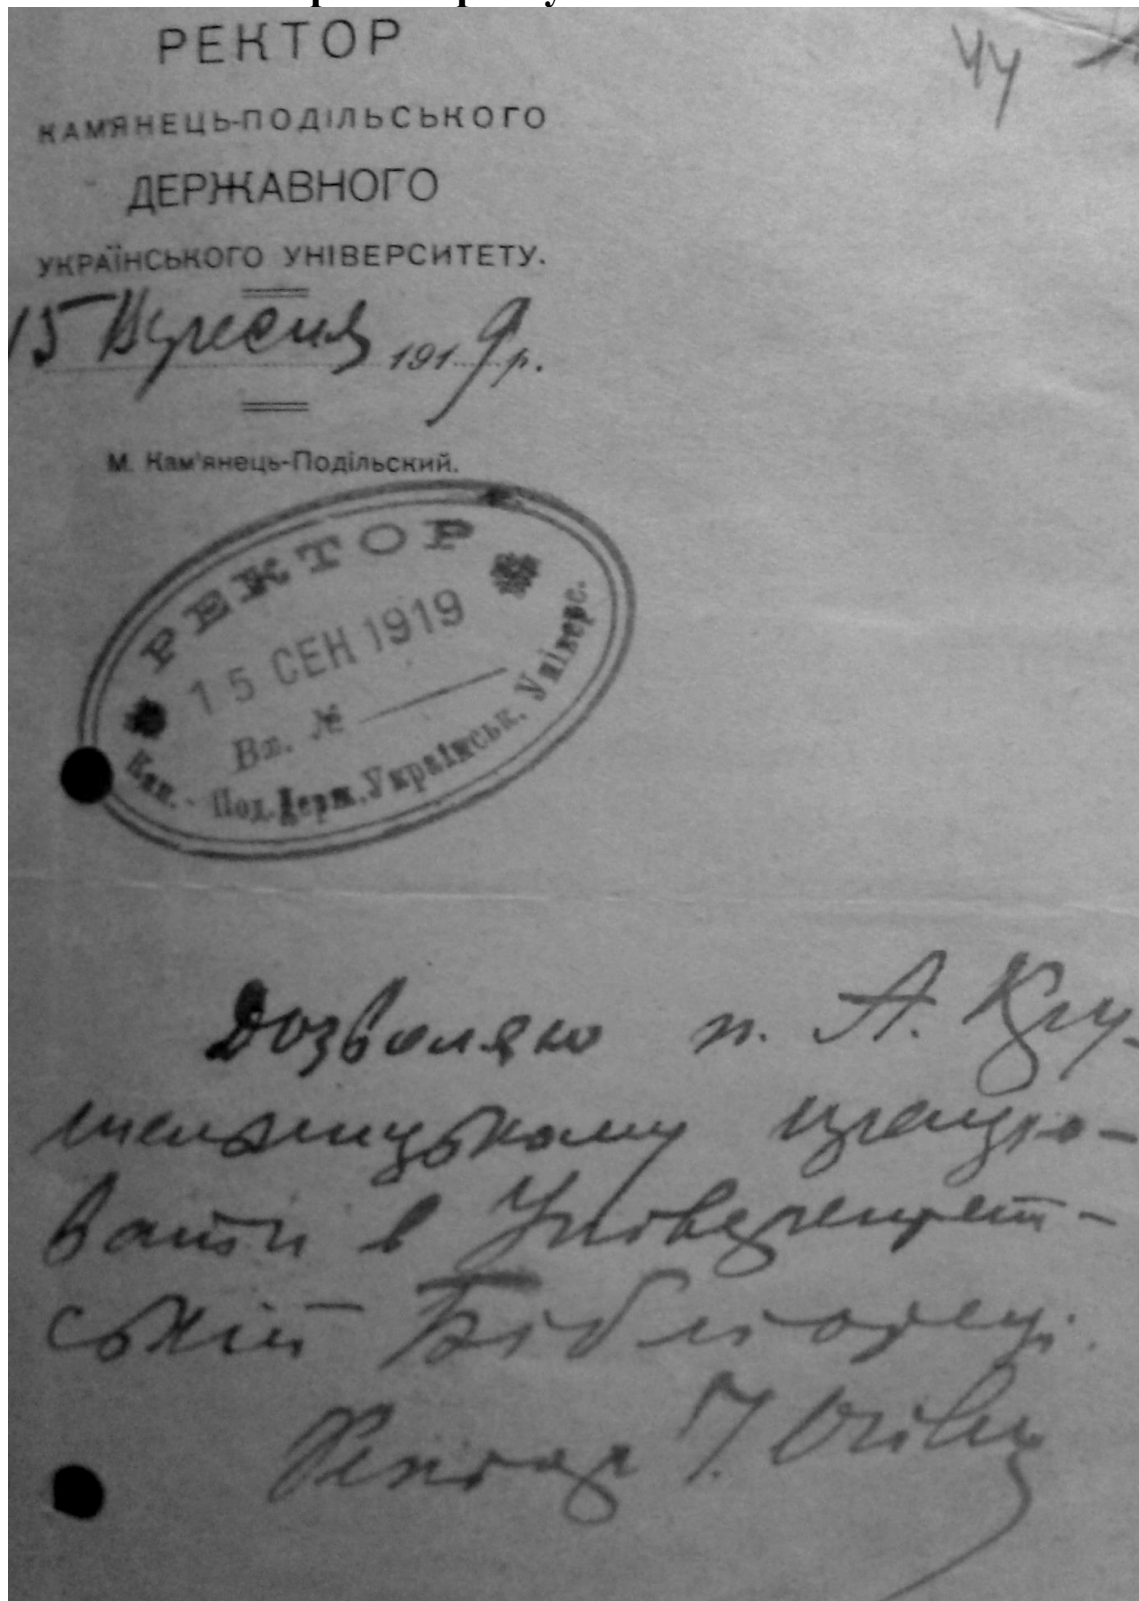 РЕКТОР
КАМ'ЯНЕЦЬ-ПОДІЛЬСЬКОГО
ДЕРЖАВНОГО
УКРАЇНСЬКОГО УНІВЕРСИТЕТУ.
15 Вересня 1919 р.
М. Кам'янець-Подільский.
РЕКТОР
15 СЕН 1919
Вх. №
Кам.-Под.Держ.Українськ. Універс.
Дозволяю п. А. Кру-
шельницькому працю-
вати в Університет-
ській Бібліотеці.
Ректор І. Огієнко